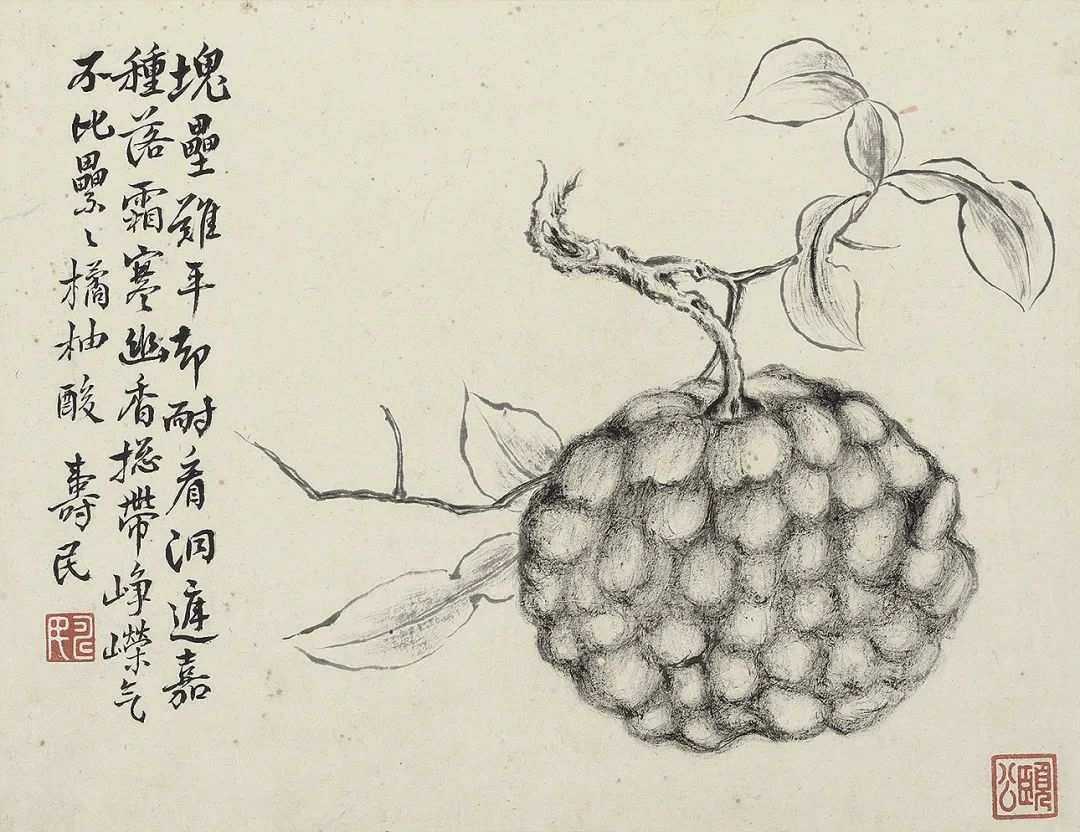 塊壘難平却耐看洞庭嘉
種落霜寒幽香揔帶崢嶸气
不比纍〻橘柚酸 壽民
頤公